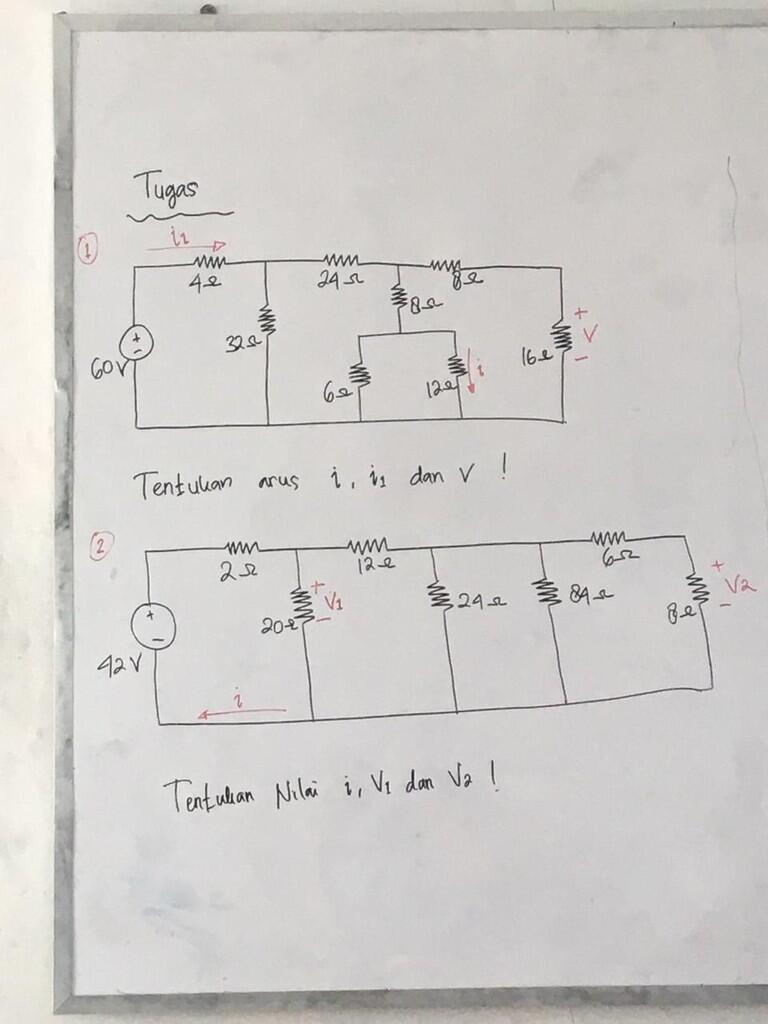 Tugas
1
i1
4Ω
24Ω
8Ω
8Ω
32Ω
60V
+
-
6Ω
12Ω
i
16Ω
+
V
-
Tentukan arus i, i1 dan V !
2
2Ω
12Ω
6Ω
+
-
42V
20Ω
+
V1
-
24Ω
84Ω
8Ω
+
V2
-
i
Tentukan Nilai i, V1 dan V2 !